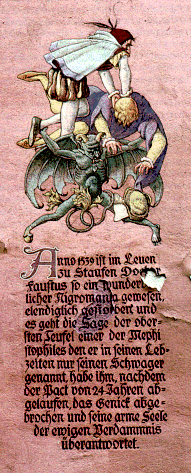 Anno 1539 ist im Leuen
zu Staufen Doctor
Faustus so ein wunder
licher Nigromanta gewesen,
elendiglich gestorben und
es geht die Sage der ober-
sten Teufel einer der Mephi
stophiles den er in seinen Leb-
zeiten nur seinen Schwager
genannt, habe ihm, nachdem
der Pact von 24 Jahren ab-
gelaufen, das Genick abge-
brochen und seine arme Seele
der ewigen Verdammnis
überantwortet.